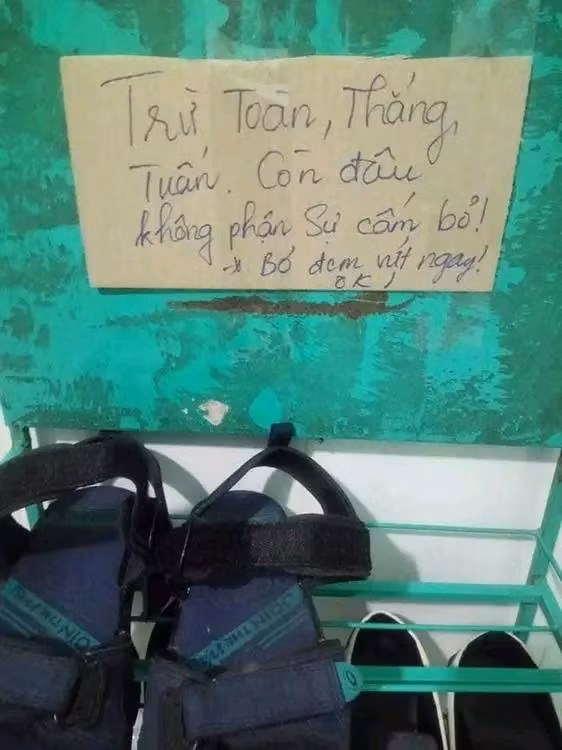 Trừ Toàn, Thắng,
Tuấn. Còn đâu
không phận Sự cấm bỏ!
→ Bỏ đem vứt ngay!
OK!